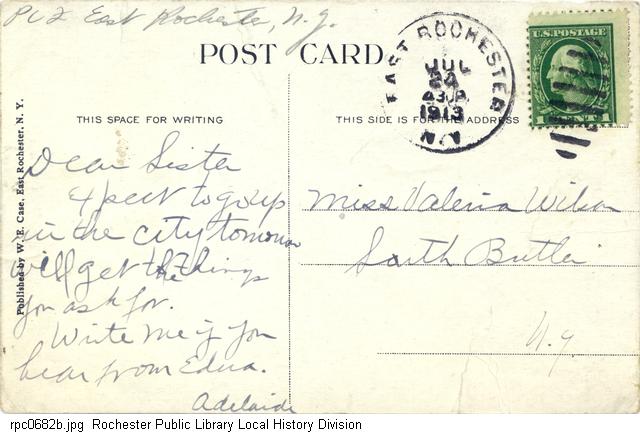 PC 2 East Rochester, N.Y.
POST CARD
EAST ROCHESTER
JUL
24
1913
N.Y.
U.S. POSTAGE
THIS SPACE FOR WRITING
THIS SIDE IS FOR THE ADDRESS
Published by W. E. Case, East Rochester, N. Y.
Dear Sister
Expect to go up
in the city tomorrow
will get the things
you ask for.
Write me if you
hear from Edna.
Adelaide
Miss Valeria Wilson
South Butler
N.Y.
rpc0682b.jpg Rochester Public Library Local History Division